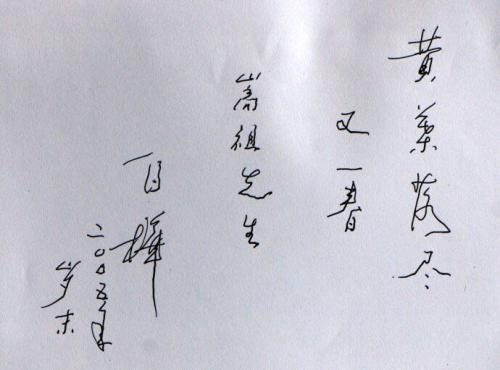 黄叶落尽
又一春
嵩祖先生
白桦
二〇〇五年
岁末